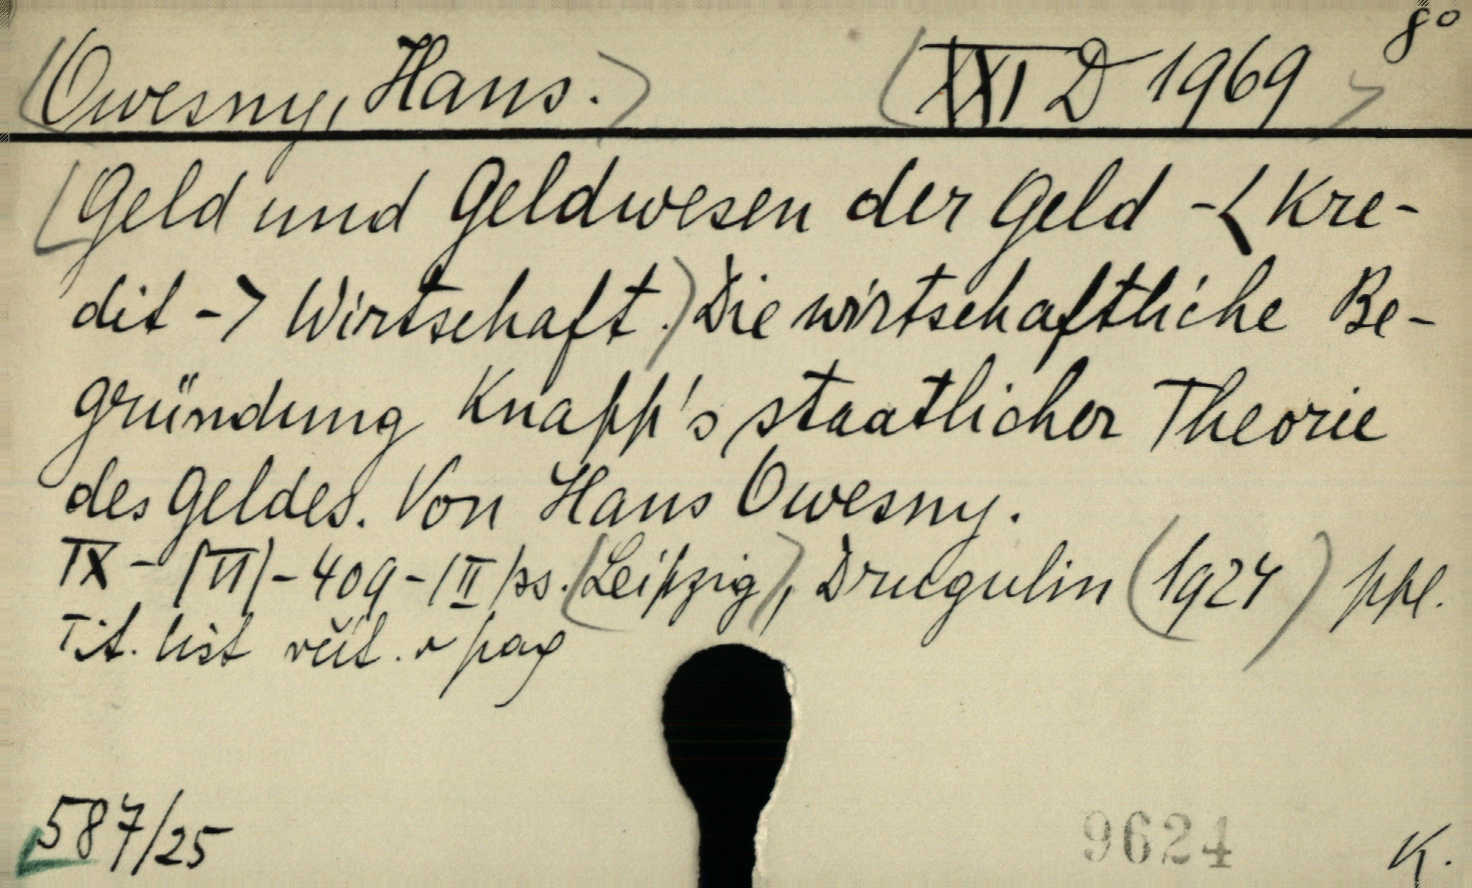 8°
(Owesny, Hans.) (XXI D 1969)
(Geld und Geldwesen der Geld -< Kre-
dit -> Wirtschaft.) Die wirtschaftliche Be-
gründung Knapp's staatlicher Theorie
des Geldes. Von Hans Owesny.
IX - |VI| - 409 - |II| ss. (Leipzig), Drugulin (1924) ppl.
Tit. list včít. v pag
587/25 9624 K.